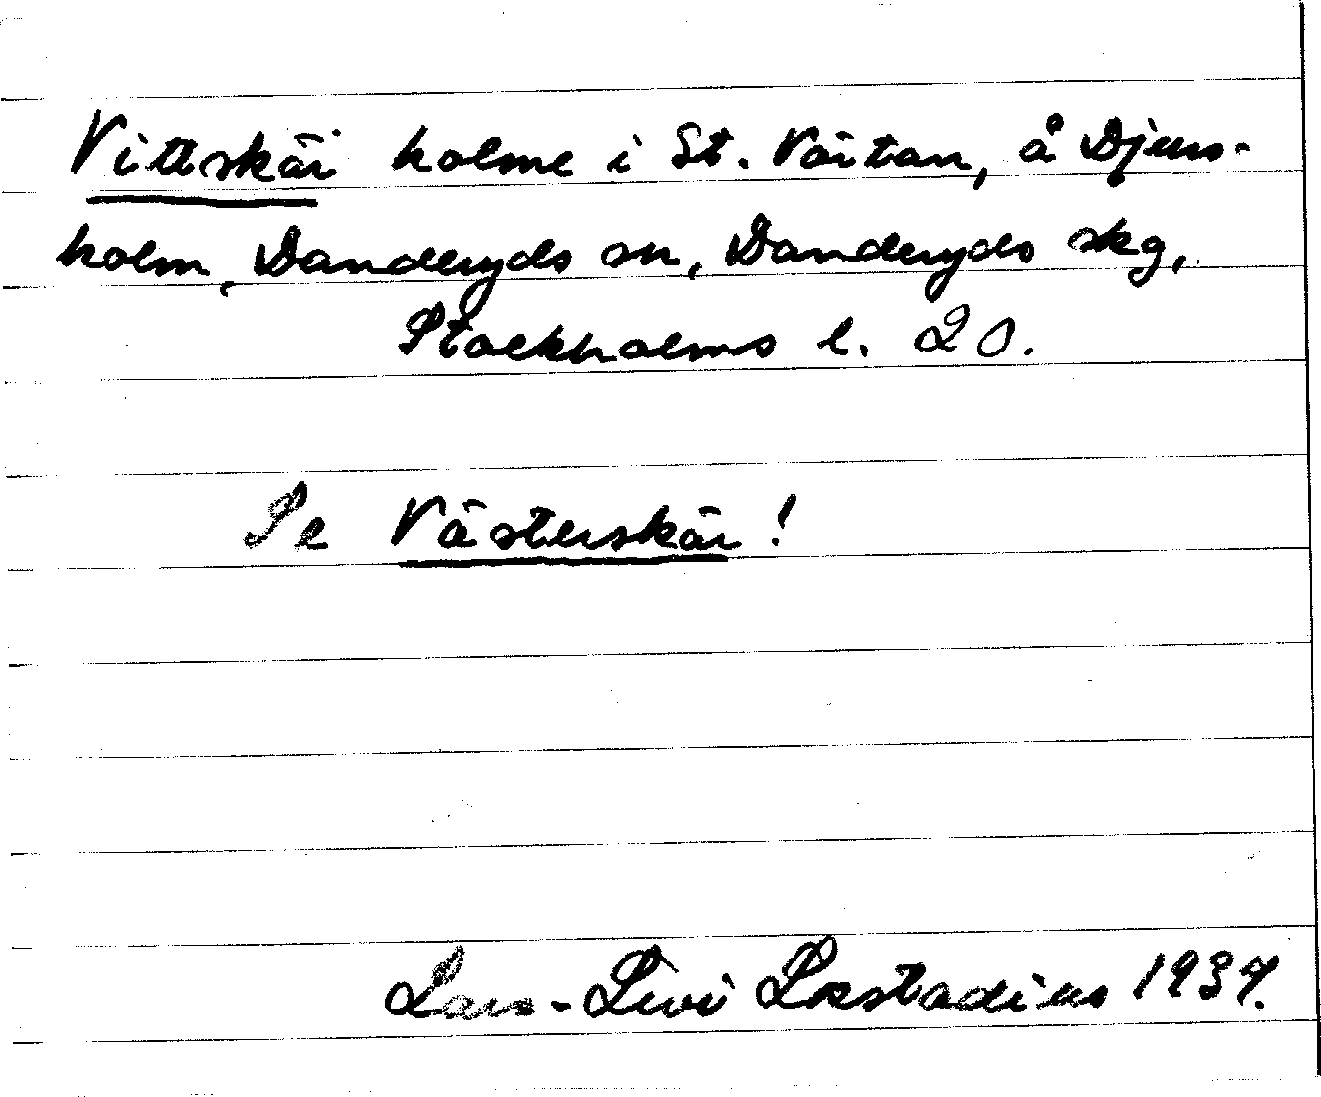 Vittskär holme i St. Värtan, å Djurs-
holm, Danderyds sn, Danderyds skg,
Stockholms l. 20.
Se Västerskär!
Lars-Levi Læstadius 1937.